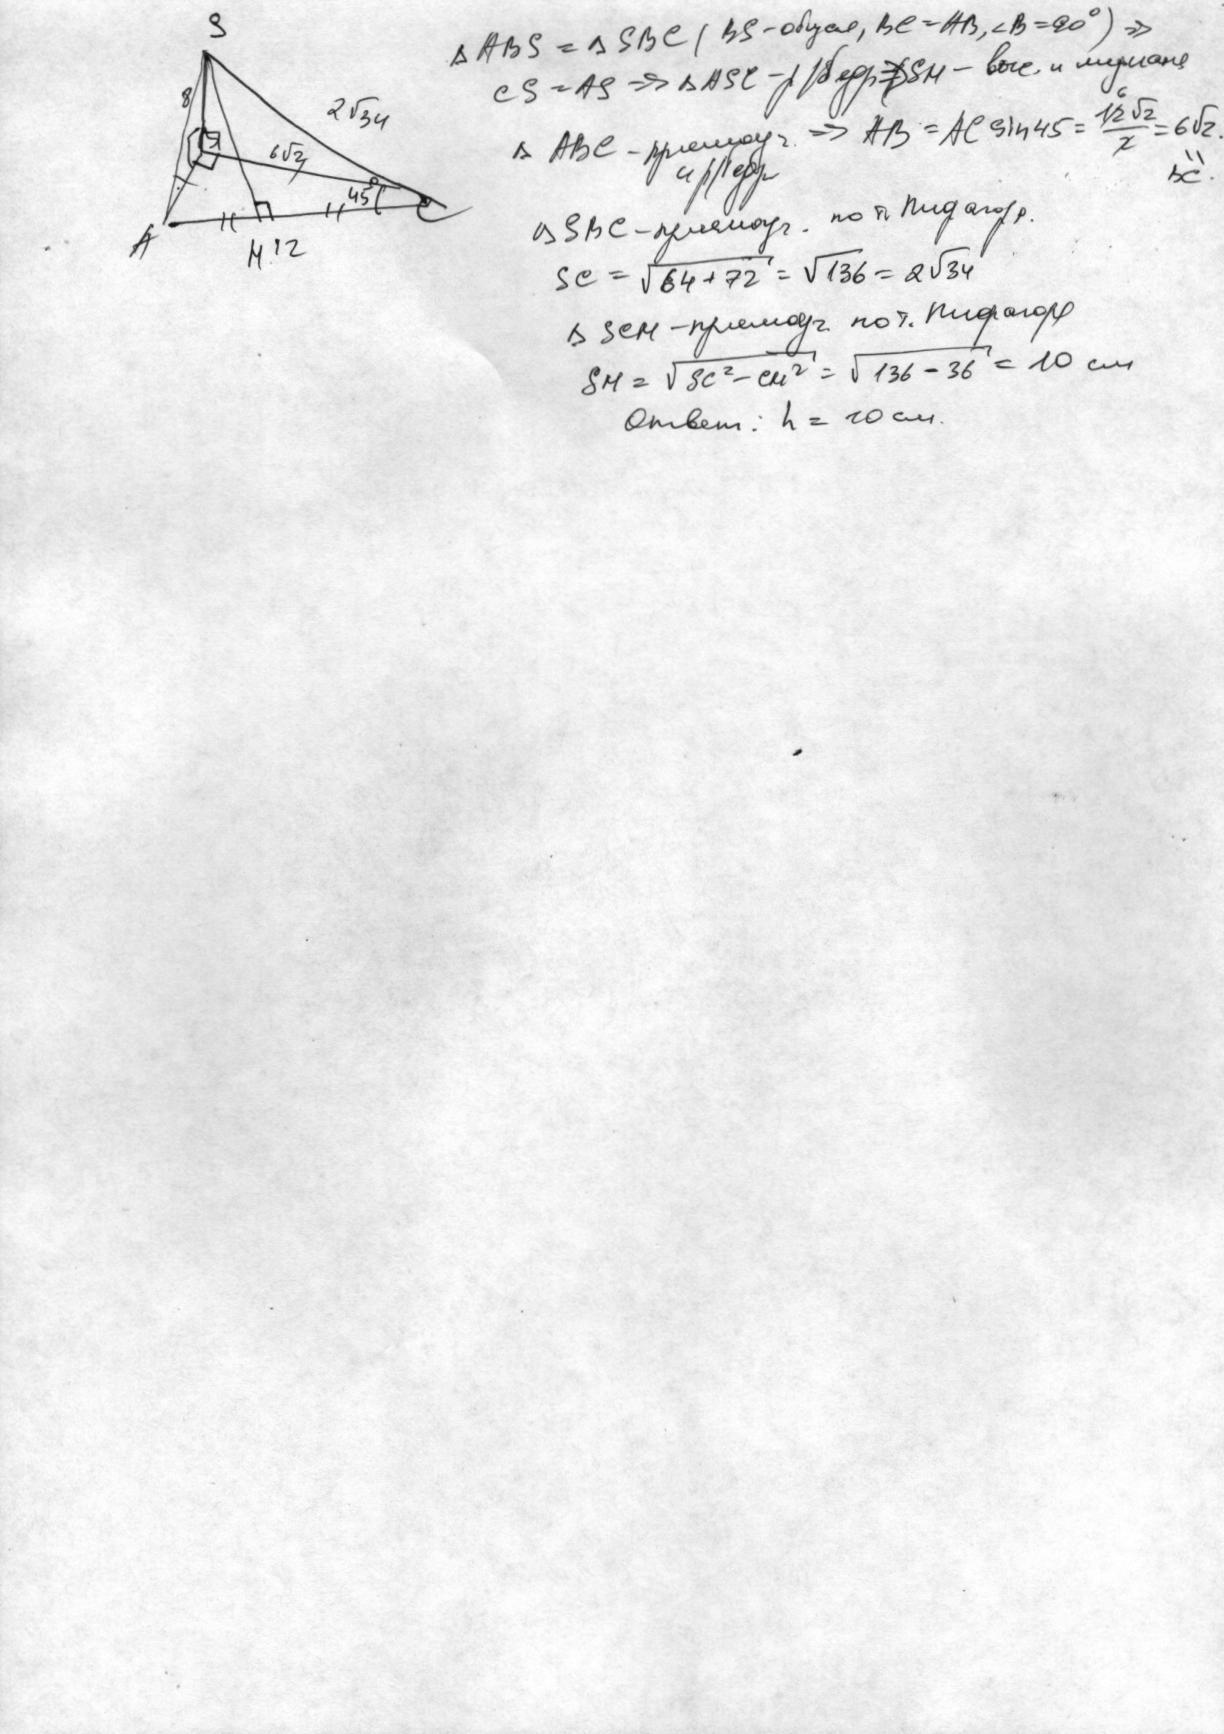 S
8
2√34
6√2
45°
A
M 12
C
△ ABS = △ SBC ( BS - общая, BC = AB, ∠B = 90° ) ⇒
CS = AS ⇒ △ ASC - р/бедр ⇒ SM - выс. и медиана
△ ABC - прямоуг. ⇒ AB = AC sin 45 = 12√2/2 = 6√2.
и р/бедр
6
BC.
△ SBC - прямоуг. по т. Пифагора.
SC = √64+72 = √136 = 2√34
△ SCM - прямоуг. по т. Пифагора
SM = √SC² - CM² = √136 - 36 = 10 см
Ответ: h = 10 см.